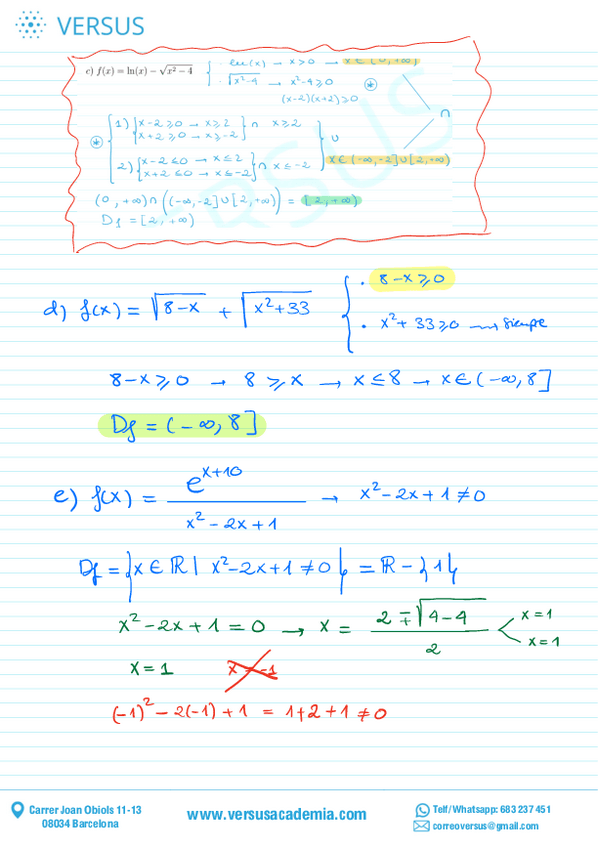 VERSUS
c) f(x) = ln(x) − √(x² − 4) { · ln(x) → x > 0 → x ∈ (0, +∞)
· √(x²−4) → x²−4 ≥ 0 ⊛
(x−2)(x+2) ≥ 0
∩
⊛ { 1) { x−2 ≥ 0 → x ≥ 2
x+2 ≥ 0 → x ≥ −2 } ∩ x ≥ 2
∪
2) { x−2 ≤ 0 → x ≤ 2
x+2 ≤ 0 → x ≤ −2 } ∩ x ≤ −2
x ∈ (−∞, −2] ∪ [2, +∞)
(0, +∞) ∩ ((−∞, −2] ∪ [2, +∞)) = [2, +∞)
Df = [2, +∞)
d) f(x) = √(8−x) + √(x²+33) { · 8−x ≥ 0
· x²+33 ≥ 0 → siempre
8−x ≥ 0 → 8 ≥ x → x ≤ 8 → x ∈ (−∞, 8]
Df = (−∞, 8]
e) f(x) = e^(x+10) / (x² − 2x + 1) → x² − 2x + 1 ≠ 0
Df = {x ∈ ℝ | x² − 2x + 1 ≠ 0} = ℝ − {1}
x² − 2x + 1 = 0 → x = (2 ∓ √(4−4)) / 2 < x = 1
x = 1
x = 1 x = −1
(−1)² − 2(−1) + 1 = 1 + 2 + 1 ≠ 0
Carrer Joan Obiols 11-13
08034 Barcelona
www.versusacademia.com
Telf/Whatsapp: 683 237 451
correoversus@gmail.com